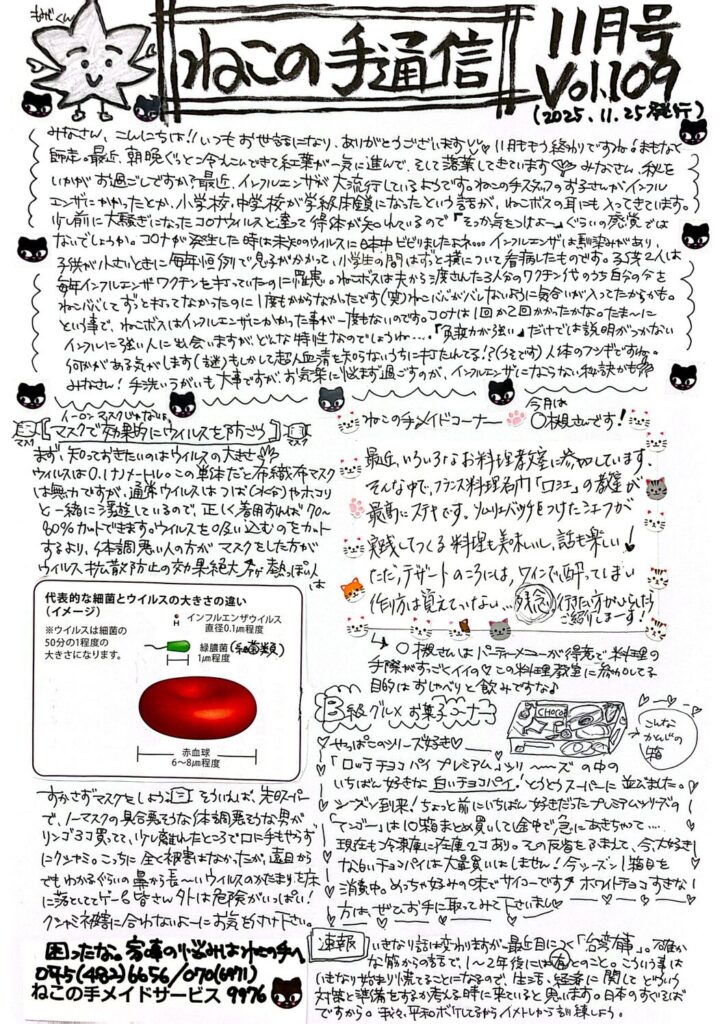 もみじくん
ねこの手通信
11月号
Vol.109
(2025.11.25発行)
みなさん、こんにちは!!いつもお世話になり、ありがとうございます♡ 11月ももう終わりですね!まもなく
師走。最近、朝晩ぐっと冷えこんできて紅葉が一気に進んで、そして落葉してきています みなさん、秋を
いかがお過ごしですか?最近、インフルエンザが大流行しているようです。ねこの手スタッフのお子さんがインフル
エンザにかかったとか、小学校・中学校が学級閉鎖になったという話が、ねこボスの耳にも入ってきています。
少し前に大騒ぎになったコロナウイルスと違って得体が知れているので『そっか気をつけよー』ぐらいの感覚では
ないでしょうか。コロナが発生した時は未知のウイルスに日本中ビビりましたよね… インフルエンザは馴染みがあり、
子供が小さいときに毎年恒例で息子がかかって、小学生の間はずっと横について看病したものです。
毎年インフルエンザワクチンを打っていたのに罹患。ねこボスは夫から渡された3人分のワクチン代のうち自分の分を
ねこババしてずっと打ってなかったのに1度もかからなかったです(笑)ねこババがバレないように気合いが入ってたからかも。
という事で、ねこボスはインフルエンザにかかった事が一度もないのです。コロナは1回か2回かかったかな。たまーに
インフルに強い人に出会いますが、どんな特性なのでしょうね…。『免疫力が強い』だけでは説明がつかない
何かがある気がします(謎)もしかして超人血清を知らないうちに打たれてる!?(うそです)人体のフシギですね。
みなさん!手洗いうがいも大事ですが、お気楽に悩まず過ごすのが、インフルエンザにならない秘訣かも
イーロンマスクじゃないよ
マスク
マスクで効果的にウイルスを防ごう
マスク
まず、知っておきたいのはウイルスの大きさ
ウイルスは0.1ナノメートル。この単体だと不織布マスク
は無力ですが、通常ウイルスはつば(水分)やホコリ
と一緒に浮遊しているので、正しく着用すれば70〜
80%カットできます。ウイルスを吸い込むのをカット
するより、体調悪い人の方がマスクをした方が
ウイルス拡散防止の効果絶大 熱っぽい人は
代表的な細菌とウイルスの大きさの違い
(イメージ)
※ウイルスは細菌の
50分の1程度の
大きさになります。
インフルエンザウイルス
直径0.1μm程度
緑膿菌(細菌類)
1μm程度
赤血球
6〜8μm程度
すかさずマスクをしよう そういえば、先日スーパー
で、ノーマスクの具合悪そうな(体調悪そうな)奥が
リンゴ3コ買ってて、少し離れたところで口に手もやらず
にクシャミ。こっちに全く被害はなかったが、遠目から
でもわかるぐらいの鼻から長〜いウイルスのかたまりを床
に落としててゲー 皆さん外は危険がいっぱい!
クシャミ被害に合わないよーにお気をつけ下さい。
困ったな。家事の悩みはねこの手へ
045(482)6656/070(6971)
ねこの手メイドサービス 9976
ねこの手メイドコーナー
今月は
○根さんです!
最近、いろいろなお料理教室に参加しています。
そんな中で、フランス料理名門「ロシェ」の教室が
最高にステキです。ソムリエバッヂをつけたシェフが
実践してつくる料理も美味しいし、話も楽しい!
ただ、デザートのころには、ワインで酔ってしまい
作り方は覚えていない…残念 行きたい方がいたら
ご紹介しまーす!
↳ ○根さんはパーティーメニューが得意で料理の
手際がすごくイイの♡この料理教室に参加してる
目的はおしゃべりと飲みですな♪
B級グルメお菓子コーナー
CHOCO
こんな
かんじの
箱
♡やっぱこのシリーズ好き♡
「ロッテチョコパイプレミアム」シリーズの中の
いちばん好きな白いチョコパイ!とうとうスーパーに並びました。
シーズン到来!ちょっと前にいちばん好きだったプレミアムシリーズの
「マンゴー」は10箱まとめ買いして途中で急にあきちゃって…
現在も冷凍庫に在庫2コあり。その反省をふまえて、今、大好き
な白いチョコパイは大量買いはしません!今シーズン1箱目を
消費中。めっちゃ好みの味でサイコーです ホワイトチョコすきな
方は、ぜひお手に取ってみて下さいまし
速報
いきなり話は変わりますが、最近目につく「台湾有事」。確か
な筋からの話で、1〜2年後には有とのこと。こういう事は
いきなり始まり慌てることになるので、生活、経済に関してどういう
対策と準備をするか考える時に来ていると思います。日本のすぐそば
ですから。我々、平和ボケしてるからイメトレから訓練しよう。